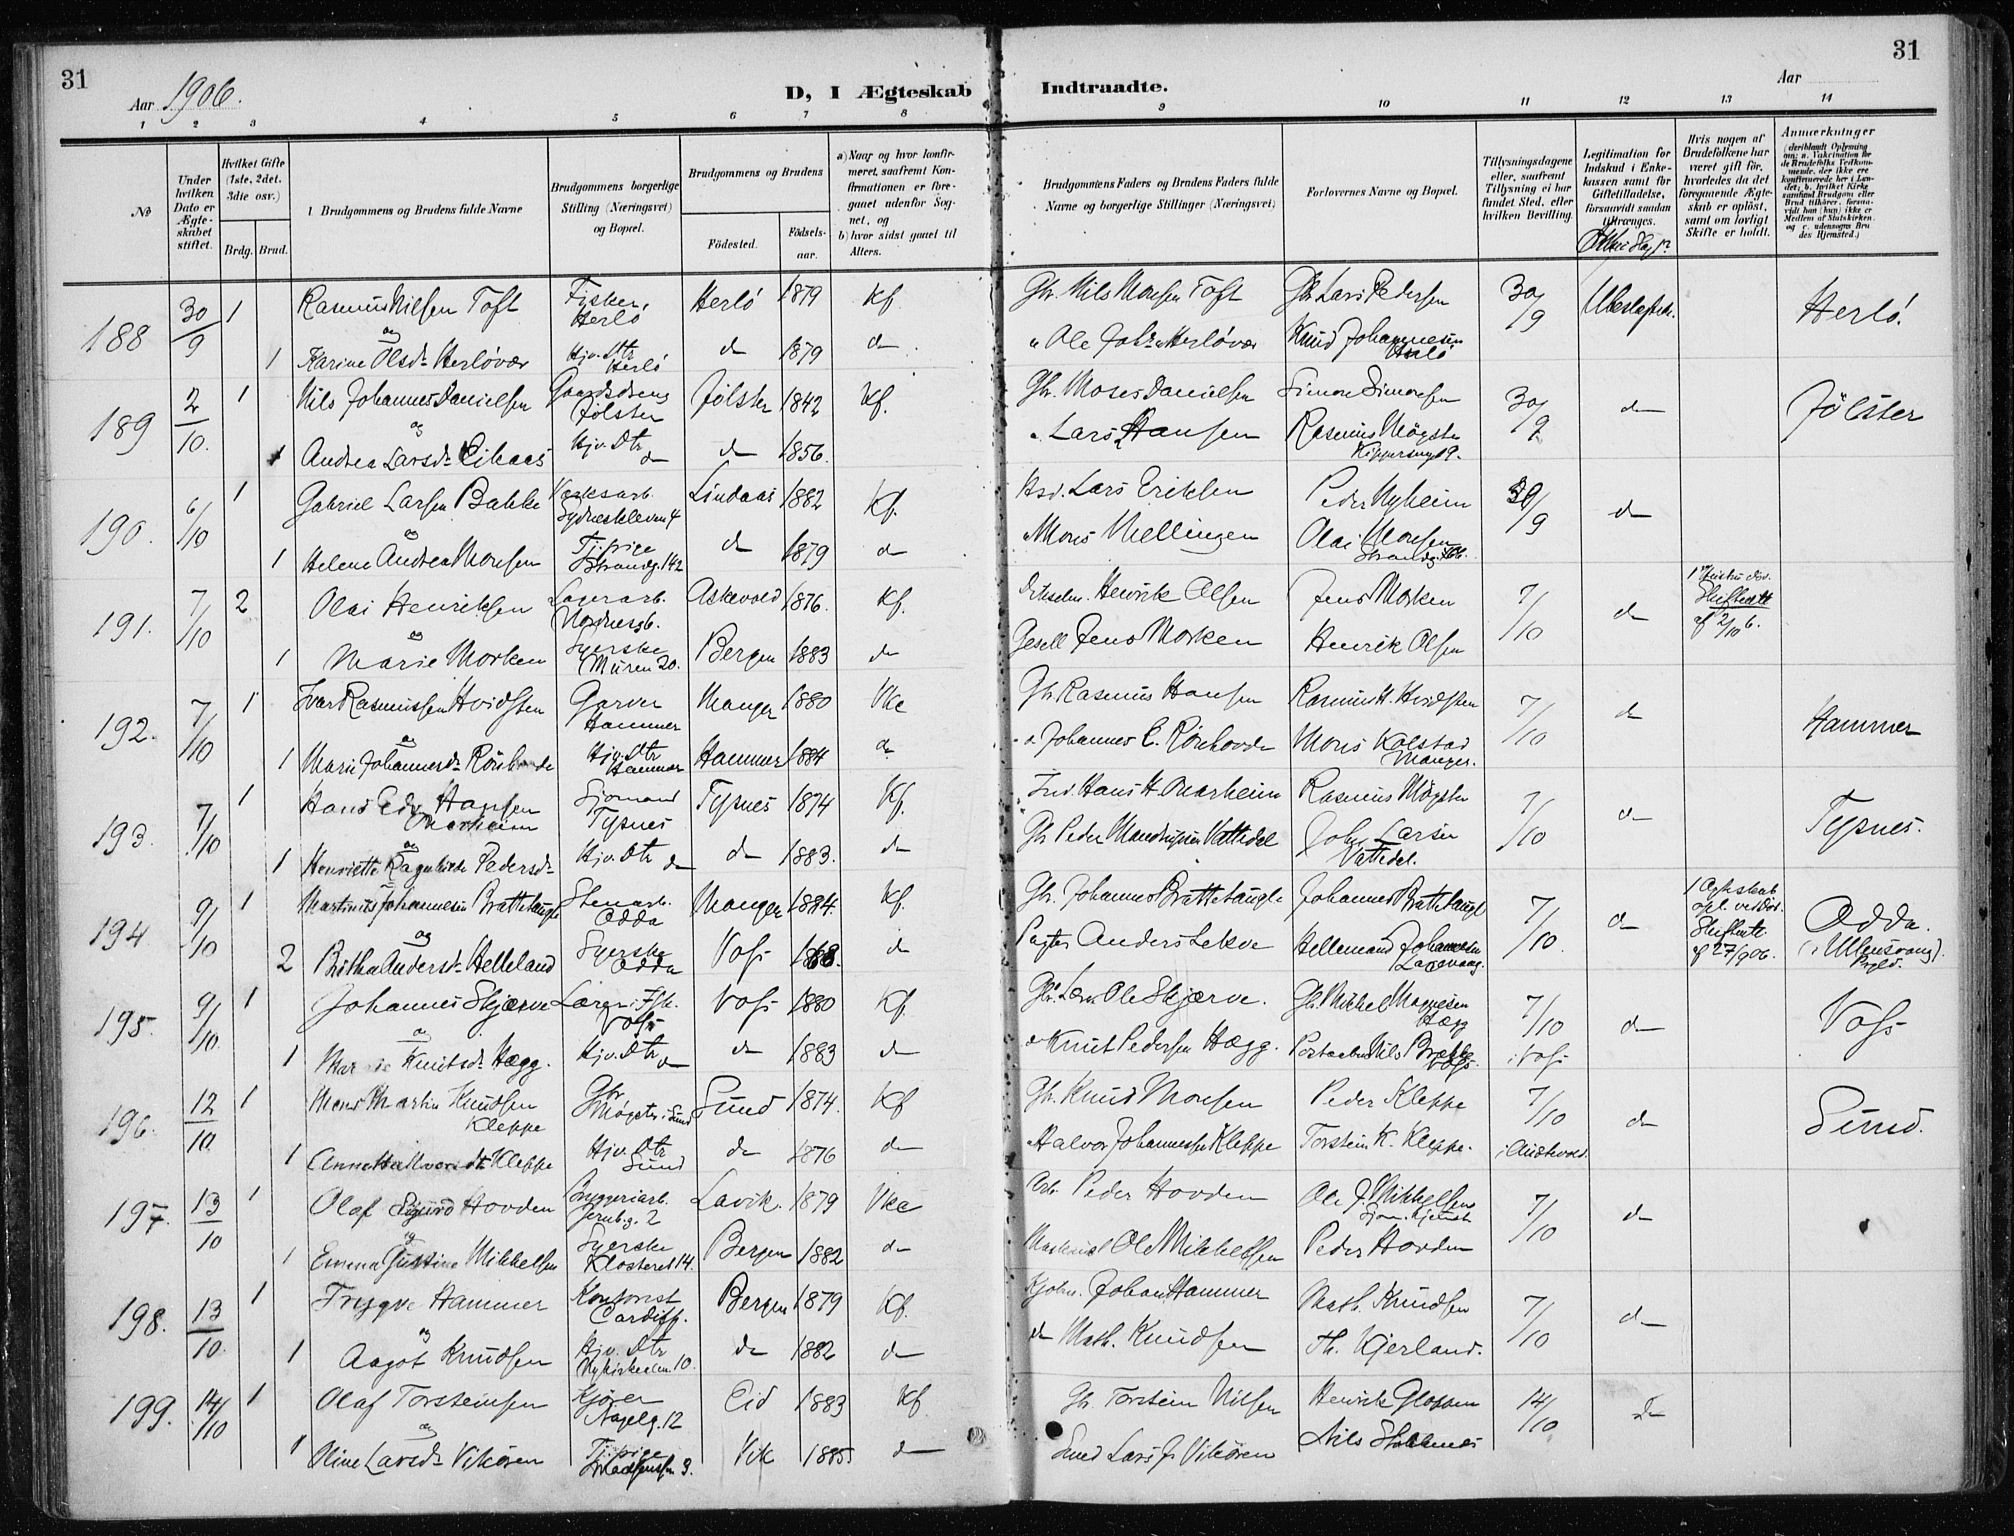 31
Aar 1906.
D, I Ægteskab Indtraadte.
Aar
31
1 2 3 4 5 6 7 8 9 10 11 12 13 14
No
Under hvilken Dato er Ægteskabet stiftet.
Hvilket Gifte (1ste, 2det, 3die osv.)
Brdg. Brud.
1 Brudgommens og Brudens fulde Navne
Brudgommens borgerlige Stilling (Næringsvei) og Bopæl.
Brudgommens og Brudens
Fødested.
Fødselsaar.
a) Naar og hvor konfirmeret, saafremt Konfirmationen er foregaaet udenfor Sognet, og
b) hvor sidst gaaet til Alters.
Brudgommens Faders og Brudens Faders fulde Navne og borgerlige Stillinger (Næringsvei)
Forlovernes Navne og Bopæl.
Tillysningsdagene eller, saafremt Tillysning ei har fundet Sted, efter hvilken Bevilling.
Legitimation for Indskud i Enkekassen samt for Giftetilladelse, forsaavidt saadan tiltrænges.
Hvis nogen af Brudefolkene har været gift før, hvorledes da det foregaaende Ægteskab er opløst, samt om lovligt Skifte er holdt.
Anmærkninger (deriblandt Oplysning om: a. Vakcination for de Brudefolks Vedkommende, der ikke ere konfirmerede her i Landet; b. hvilket Kirkesamfund Brudgom eller Brud tilhører, forsaavidt han (hun) ikke er Medlem af Statskirken, og c. udensogns Brudes Hjemsted.)
188 30/9 1 Rasmus Nilsen Toft Fisker, Herlö Herlö 1879 Kf Gbr. Nils Monsen Toft Gbr. Lars Pedersen 30/9 Ubeslægtede. Herlö.
og
1 Karine Olsdr Herlövær Hjv. Dtr Herlö do 1879 do " Ole Johs. Herlövær Knud Johannesen Herlö
189 2/10. 1 Nils Johannes Danielsen Gaardsdreng Jölster Jölster 1842 Kf. Gbr. Moses Danielsen Simon Simonsen 30/9 do Jölster
og
1 Andrea Larsdr Eikaas Hjv. Dtr do do 1856. " Lars Hansen Rasmus Mögster
190. 6/10 1 Gabriel Larsen Bakke Verksarb. Sydneskleven 4 Lindaas 1882 Kf. Hsd. Lars Eriksen Peder Nyheim 30/9 do
og
1 Helene Andrea Monsen Tjpige Strandg. 142 do 1879 do " Mons Mellingen Olai Monsen
191. 7/10 2 Olai Henriksen Lagerarb. Nordnesg. Askevold 1876. Kf. Henrik Olsen Jens Morken 7/10 do af 2/10 6.
og
1 Marie Morken Syerske Muren 20. Bergen 1883 do Gesell Jens Morken Henrik Olsen
192. 7/10 1 Ivar Rasmussen Hvidsten Garver Hammer Manger 1880 Vke Gbr. Rasmus Hansen Rasmus H. Hvidsten 7/10 do Hammer
og
1 Marie Johannesdr Rönhovde Hjv. Dtr Hammer Hammer 1884 do " Johannes E. Rönhovde Mons Kolstad Manger.
193. 7/10 1 Hans Edv. Hansen Onarheim Sjömand Tysnes Tysnes 1874 Kf. Ind. Hans H. Onarheim Rasmus Mögster 7/10 do Tysnes.
og
1 Henriette Ragnhilde Pedersdr Hjv. Dtr do do 1883. do Gbr Peder Mandrupsen Vattedal John Larsen Vattedal.
194 9/10 1 Martinus Johannesen Brattetaugle Stenarb. Odda Manger 1884. Kf. Gbr. Johannes Brattetaugle Johannes Brattetaugl 7/10. do 1 Ægteskab opl. ved Död. Skifteatt. af 27/9 06. Odda. (i Ullensvang Prgld.)
og
2 Britha Andersdr Helleland Syerske Odda Voss 1868. do Anders Lekve Hellemand Johannesen Laxevaag.
195. 9/10. 1 Johannes Skjærve Voss Voss 1880 Kf. Ole Skjærve. Gbr. Mikkel Magnesen Hægg 7/10 do Voss
og
1 Knutsdr Hægg. Hjv. Dtr do do 1883 do " Knut Pedersen Hægg. Nils Brække Voss. i Voss
196. 12/10 1 Mons Martin Knudsen Kleppe Gbr Møgster i Sund Sund 1874. Kf Gbr. Knud Monsen Peder Kleppe 7/10 do Sund.
1 Anne Halvorsdr Kleppe Hjv. Dtr Sund do 1876 do " Halvor Johannessen Kleppe Torstein K. Kleppe. i Austevold.
197. 13/10 1 Olaf Sigurd Hovden Bryggeriarb. Jernbg. 2 Lavik. 1879 Vke Arb. Peder Hovden Ole J. Mikkelsen 7/10 do
og
1 Emma Justine Mikkelsen Syerske Klosteret 14. Bergen 1882 do Ole Mikkelsen Peder Hovden
198. 13/10. 1 Trygve Hammer Kontorist Cardiff. Bergen 1879 Kf. Kjøbm. Johan Hammer Math. Knudsen 7/10 do
og
1 Aagot Knudsen Hjv. Dtr Nykirkealm. 10. do 1882 do do Math. Knudsen Th. Kjerland.
199. 14/10 1 Olaf Torsteinsen Kjörer Nagelg. 12 Eid 1883 Kf Gbr. Torstein Nilsen Henrik Gloppen 14/10 do
og
1 Oline Larsdr Vikören Tjpige Vik 1885 do Lars J. Vikören Nils Stokkenes